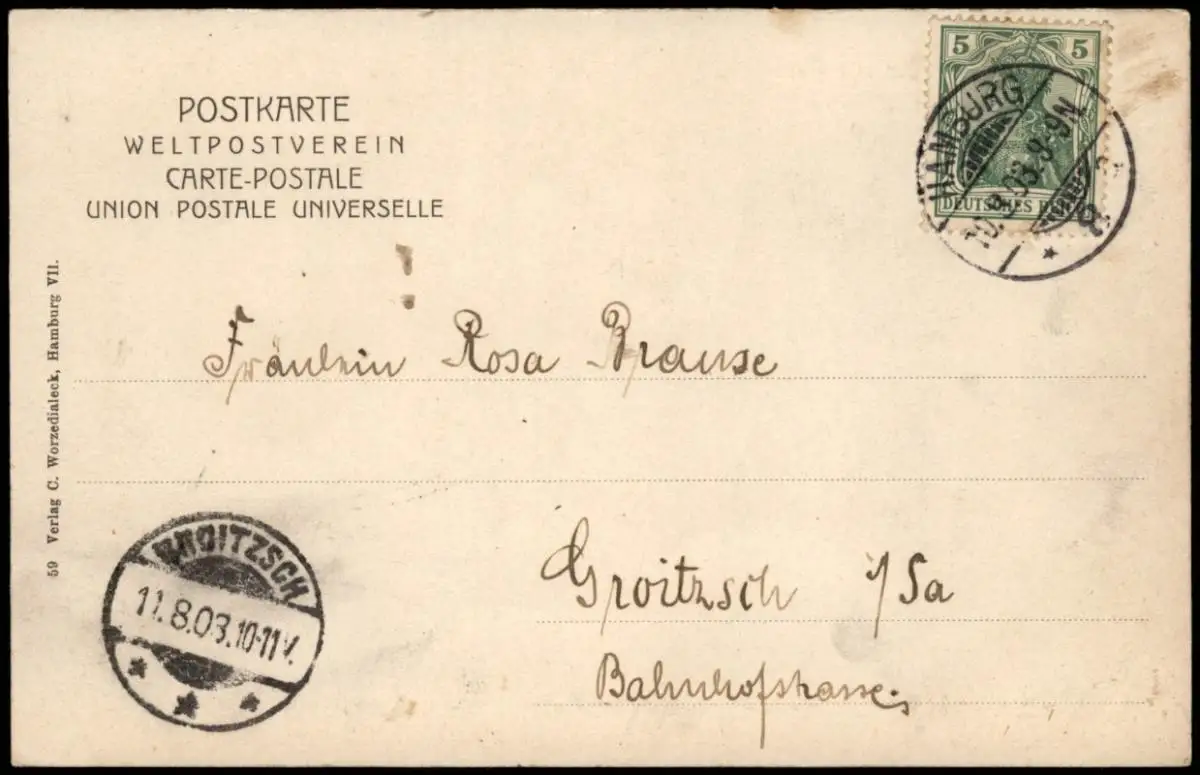 POSTKARTE
WELTPOSTVEREIN
CARTE-POSTALE
UNION POSTALE UNIVERSELLE
5 5
DEUTSCHES
HAMBURG
10.8.03. 8-9N
8
Fräulein Rosa Brause
Groitzsch i/Sa
Bahnhofstrasse
GROITZSCH
11.8.03.10-11V.
59 Verlag C. Worzedialeck, Hamburg VII.